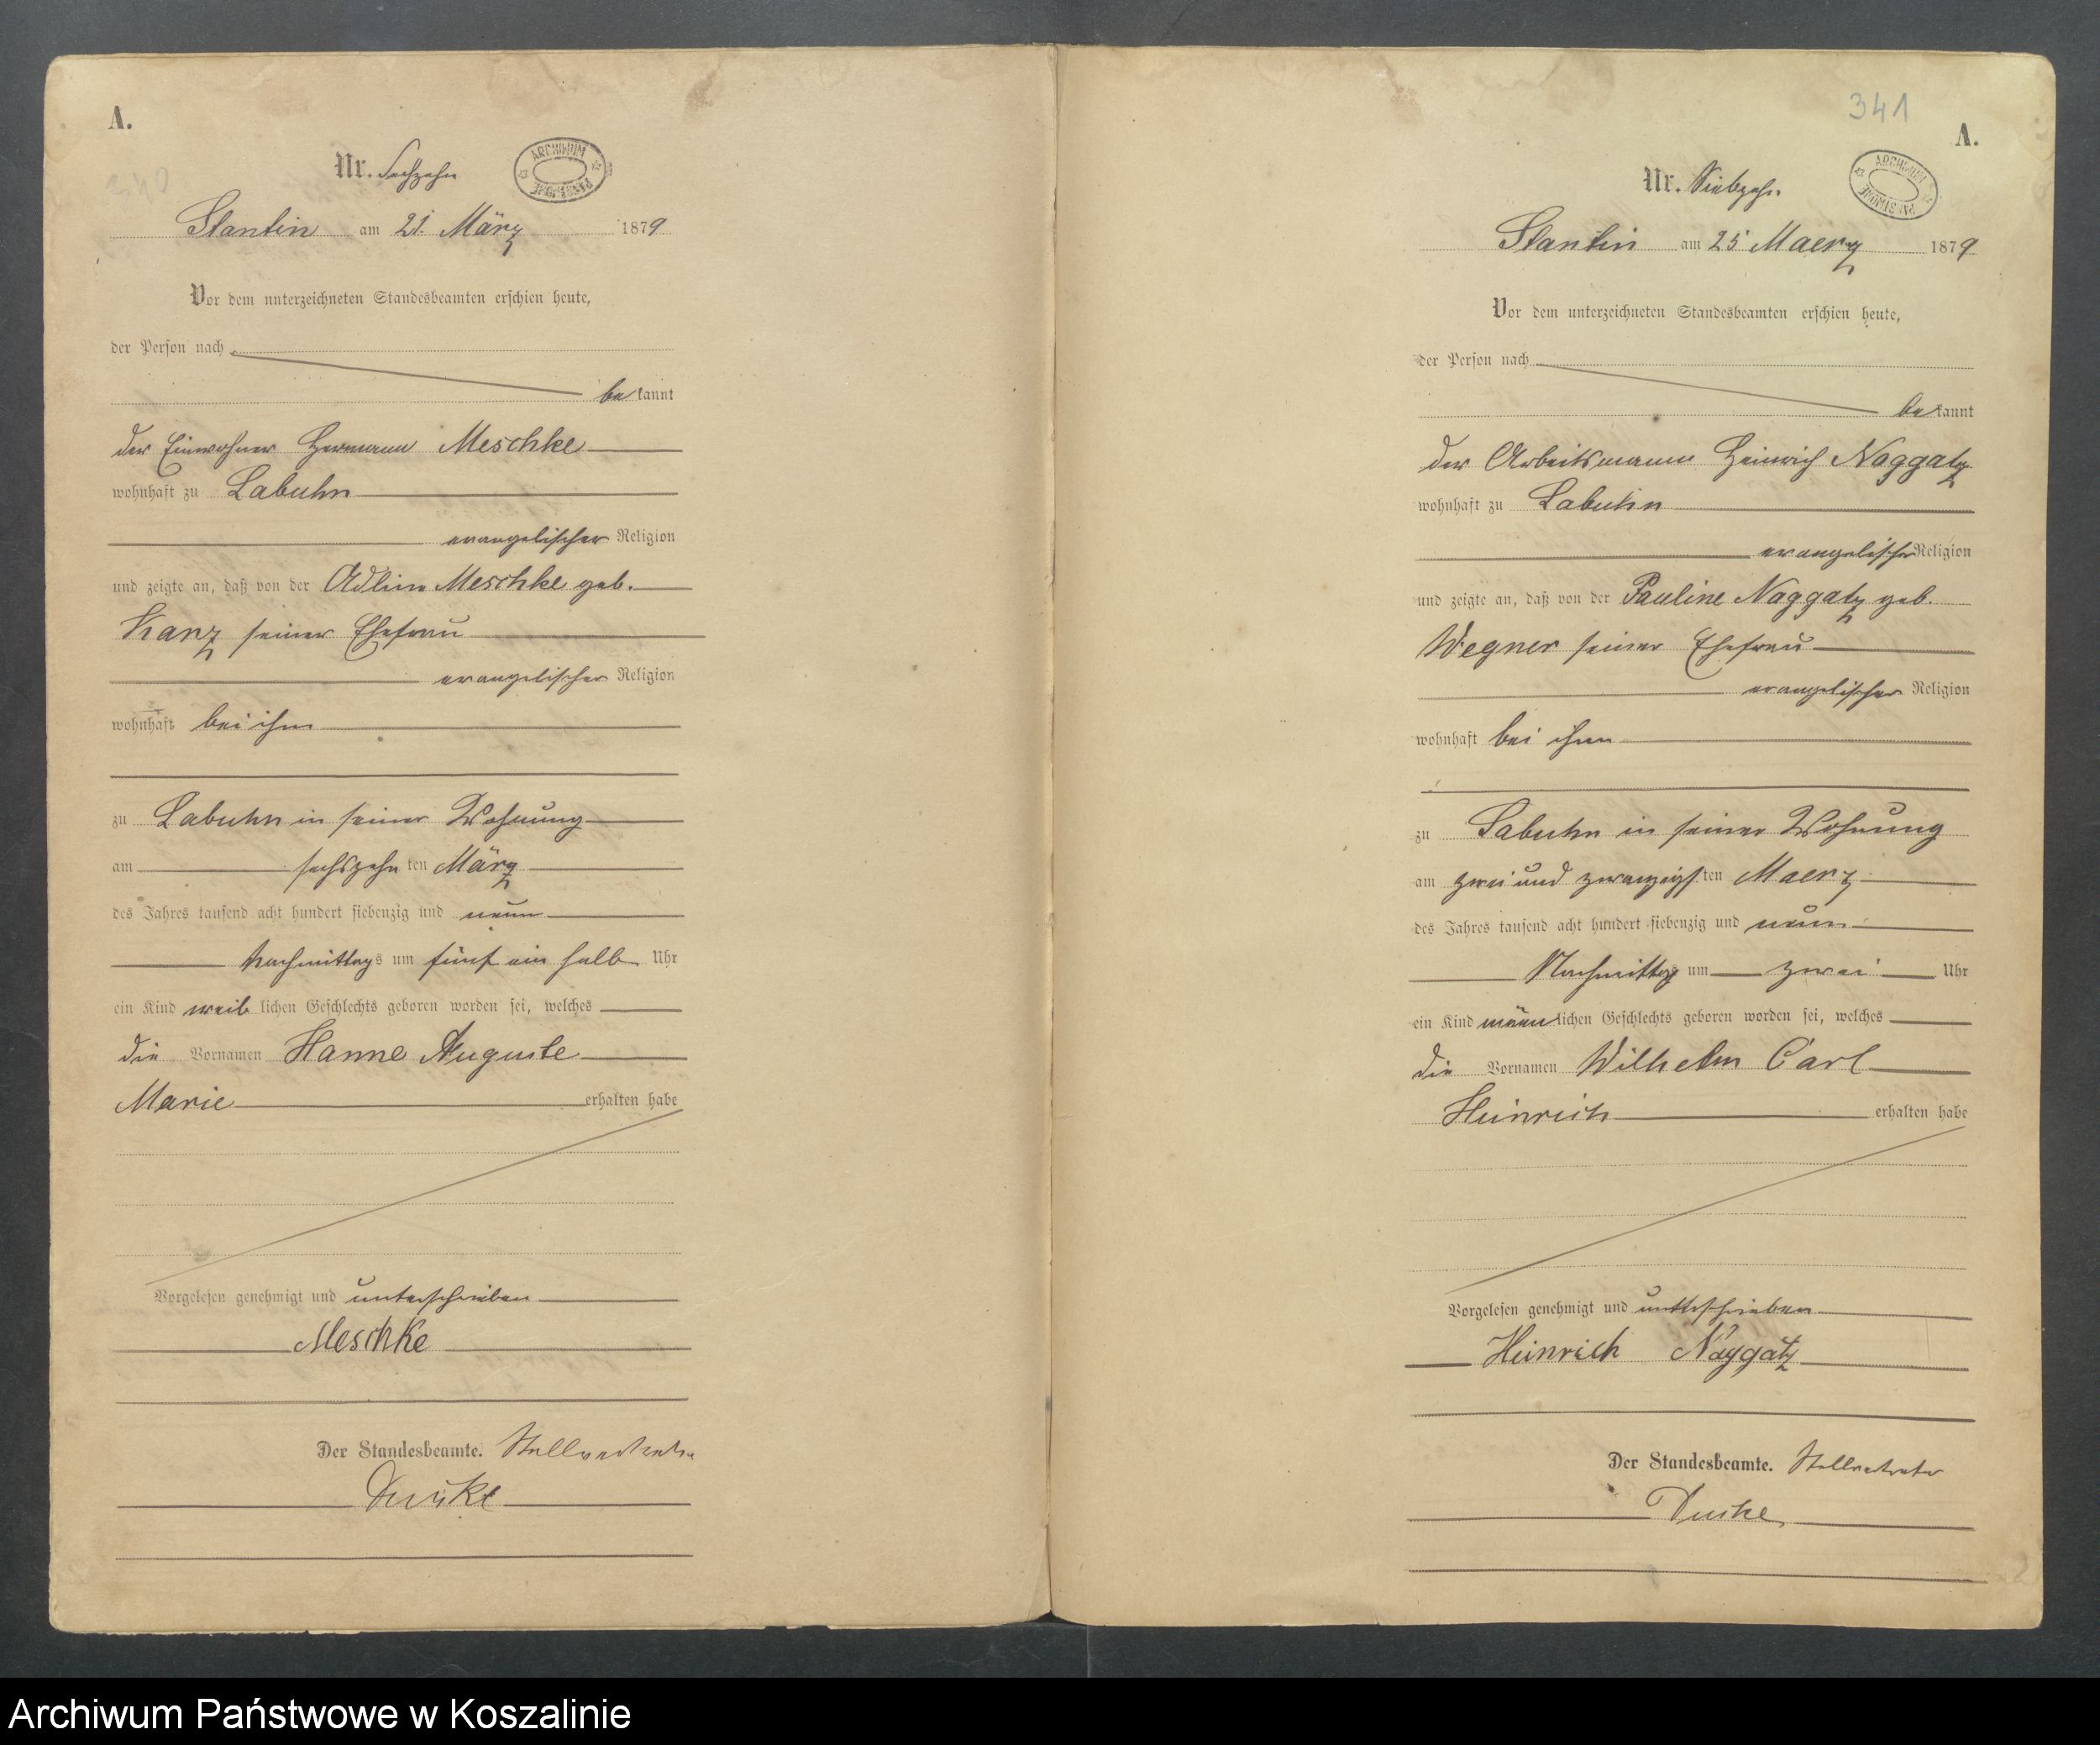 A.
Nr. Sechzehn
ARCHIWUM
Stantin am 21. März 1879
Vor dem unterzeichneten Standesbeamten erschien heute,
der Person nach
bekannt
der Einwohner Hermann Meschke
wohnhaft zu Labuhn
evangelischer Religion
und zeigte an, daß von der Adline Meschke geb.
Kanz seiner Ehefrau
evangelischer Religion
wohnhaft bei ihm
zu Labuhn in seiner Wohnung
am sechszehnten März
des Jahres tausend acht hundert siebenzig und neun
Nachmittags um fünf ein halb Uhr
ein Kind weiblichen Geschlechts geboren worden sei, welches
die Vornamen Hanne Auguste
Marie erhalten habe
Vorgelesen genehmigt und unterschrieben
Meschke
Der Standesbeamte. Stellvertreter
341
A.
Nr. Siebzehn
ARCHIWUM
Stantin am 25 Maerz 1879
Vor dem unterzeichneten Standesbeamten erschien heute,
der Person nach
bekannt
der Arbeitsmann Heinrich Naggatz
wohnhaft zu Labuhn
evangelischer Religion
und zeigte an, daß von der Pauline Naggatz geb.
Wegner seiner Ehefrau
evangelischer Religion
wohnhaft bei ihm
zu Labuhn in seiner Wohnung
am zwei und zwanzigsten Maerz
des Jahres tausend acht hundert siebenzig und neun
Nachmittags um zwei Uhr
ein Kind männlichen Geschlechts geboren worden sei, welches
die Vornamen Wilhelm Carl
Heinrich erhalten habe
Vorgelesen genehmigt und unterschrieben
Heinrich Naggatz
Der Standesbeamte. Stellvertreter
Archiwum Państwowe w Koszalinie